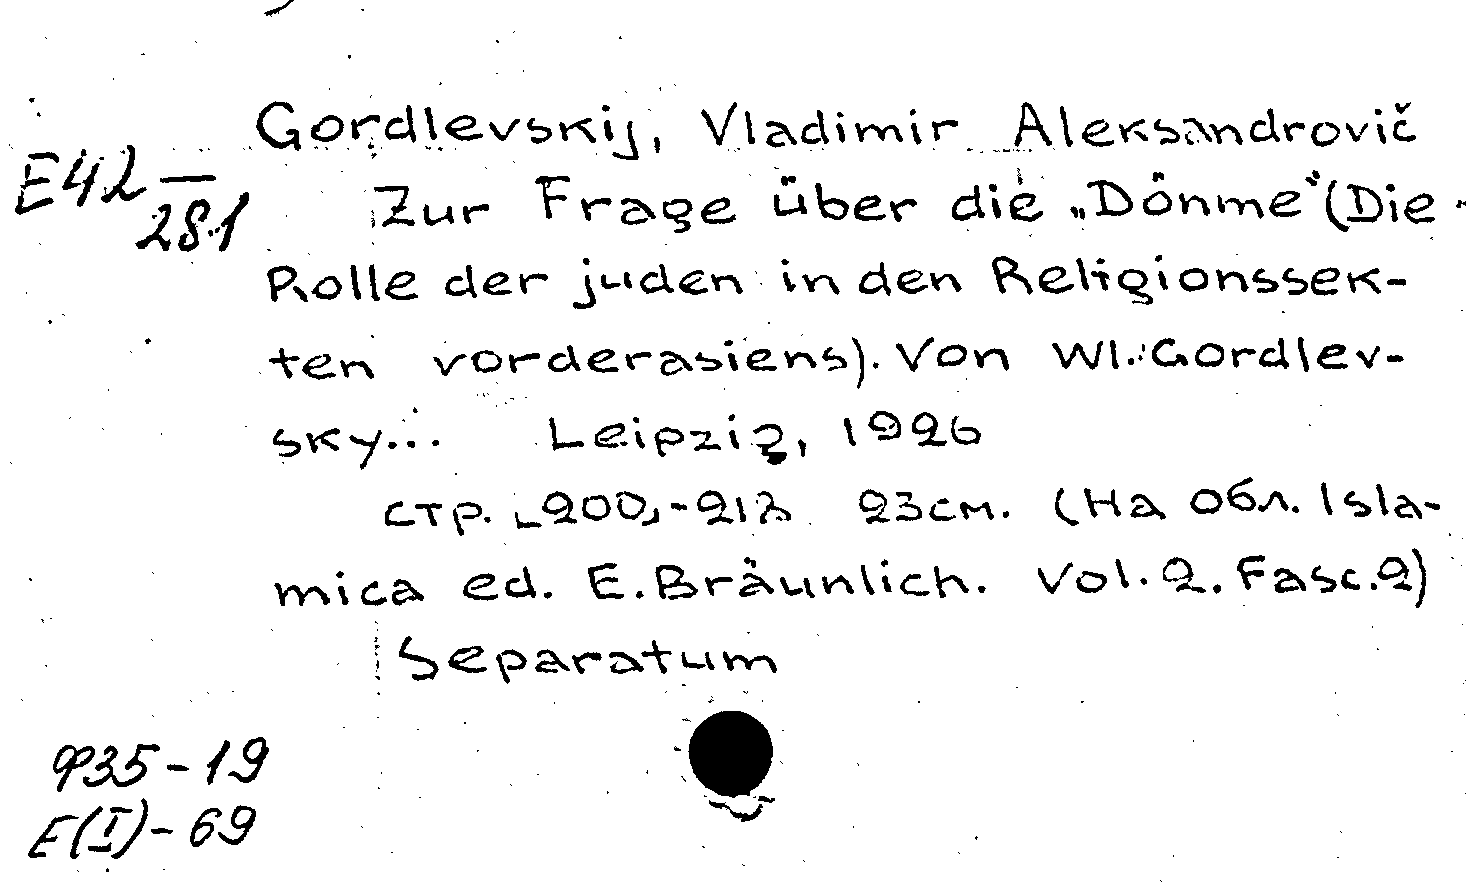 Gordlevskij, Vladimir Aleksandrovič
E42
281
Zur Frage über die „Dönme“ (Die
Rolle der juden in den Religionssek-
ten vorderasiens). Von Wl. Gordlev-
sky... Leipzig, 1926
стр. [200]-218 23см. (На обл. Isla-
mica ed. E. Bräunlich. Vol. 2. Fasc. 2)
Separatum
Ф35-19
E(I)-69